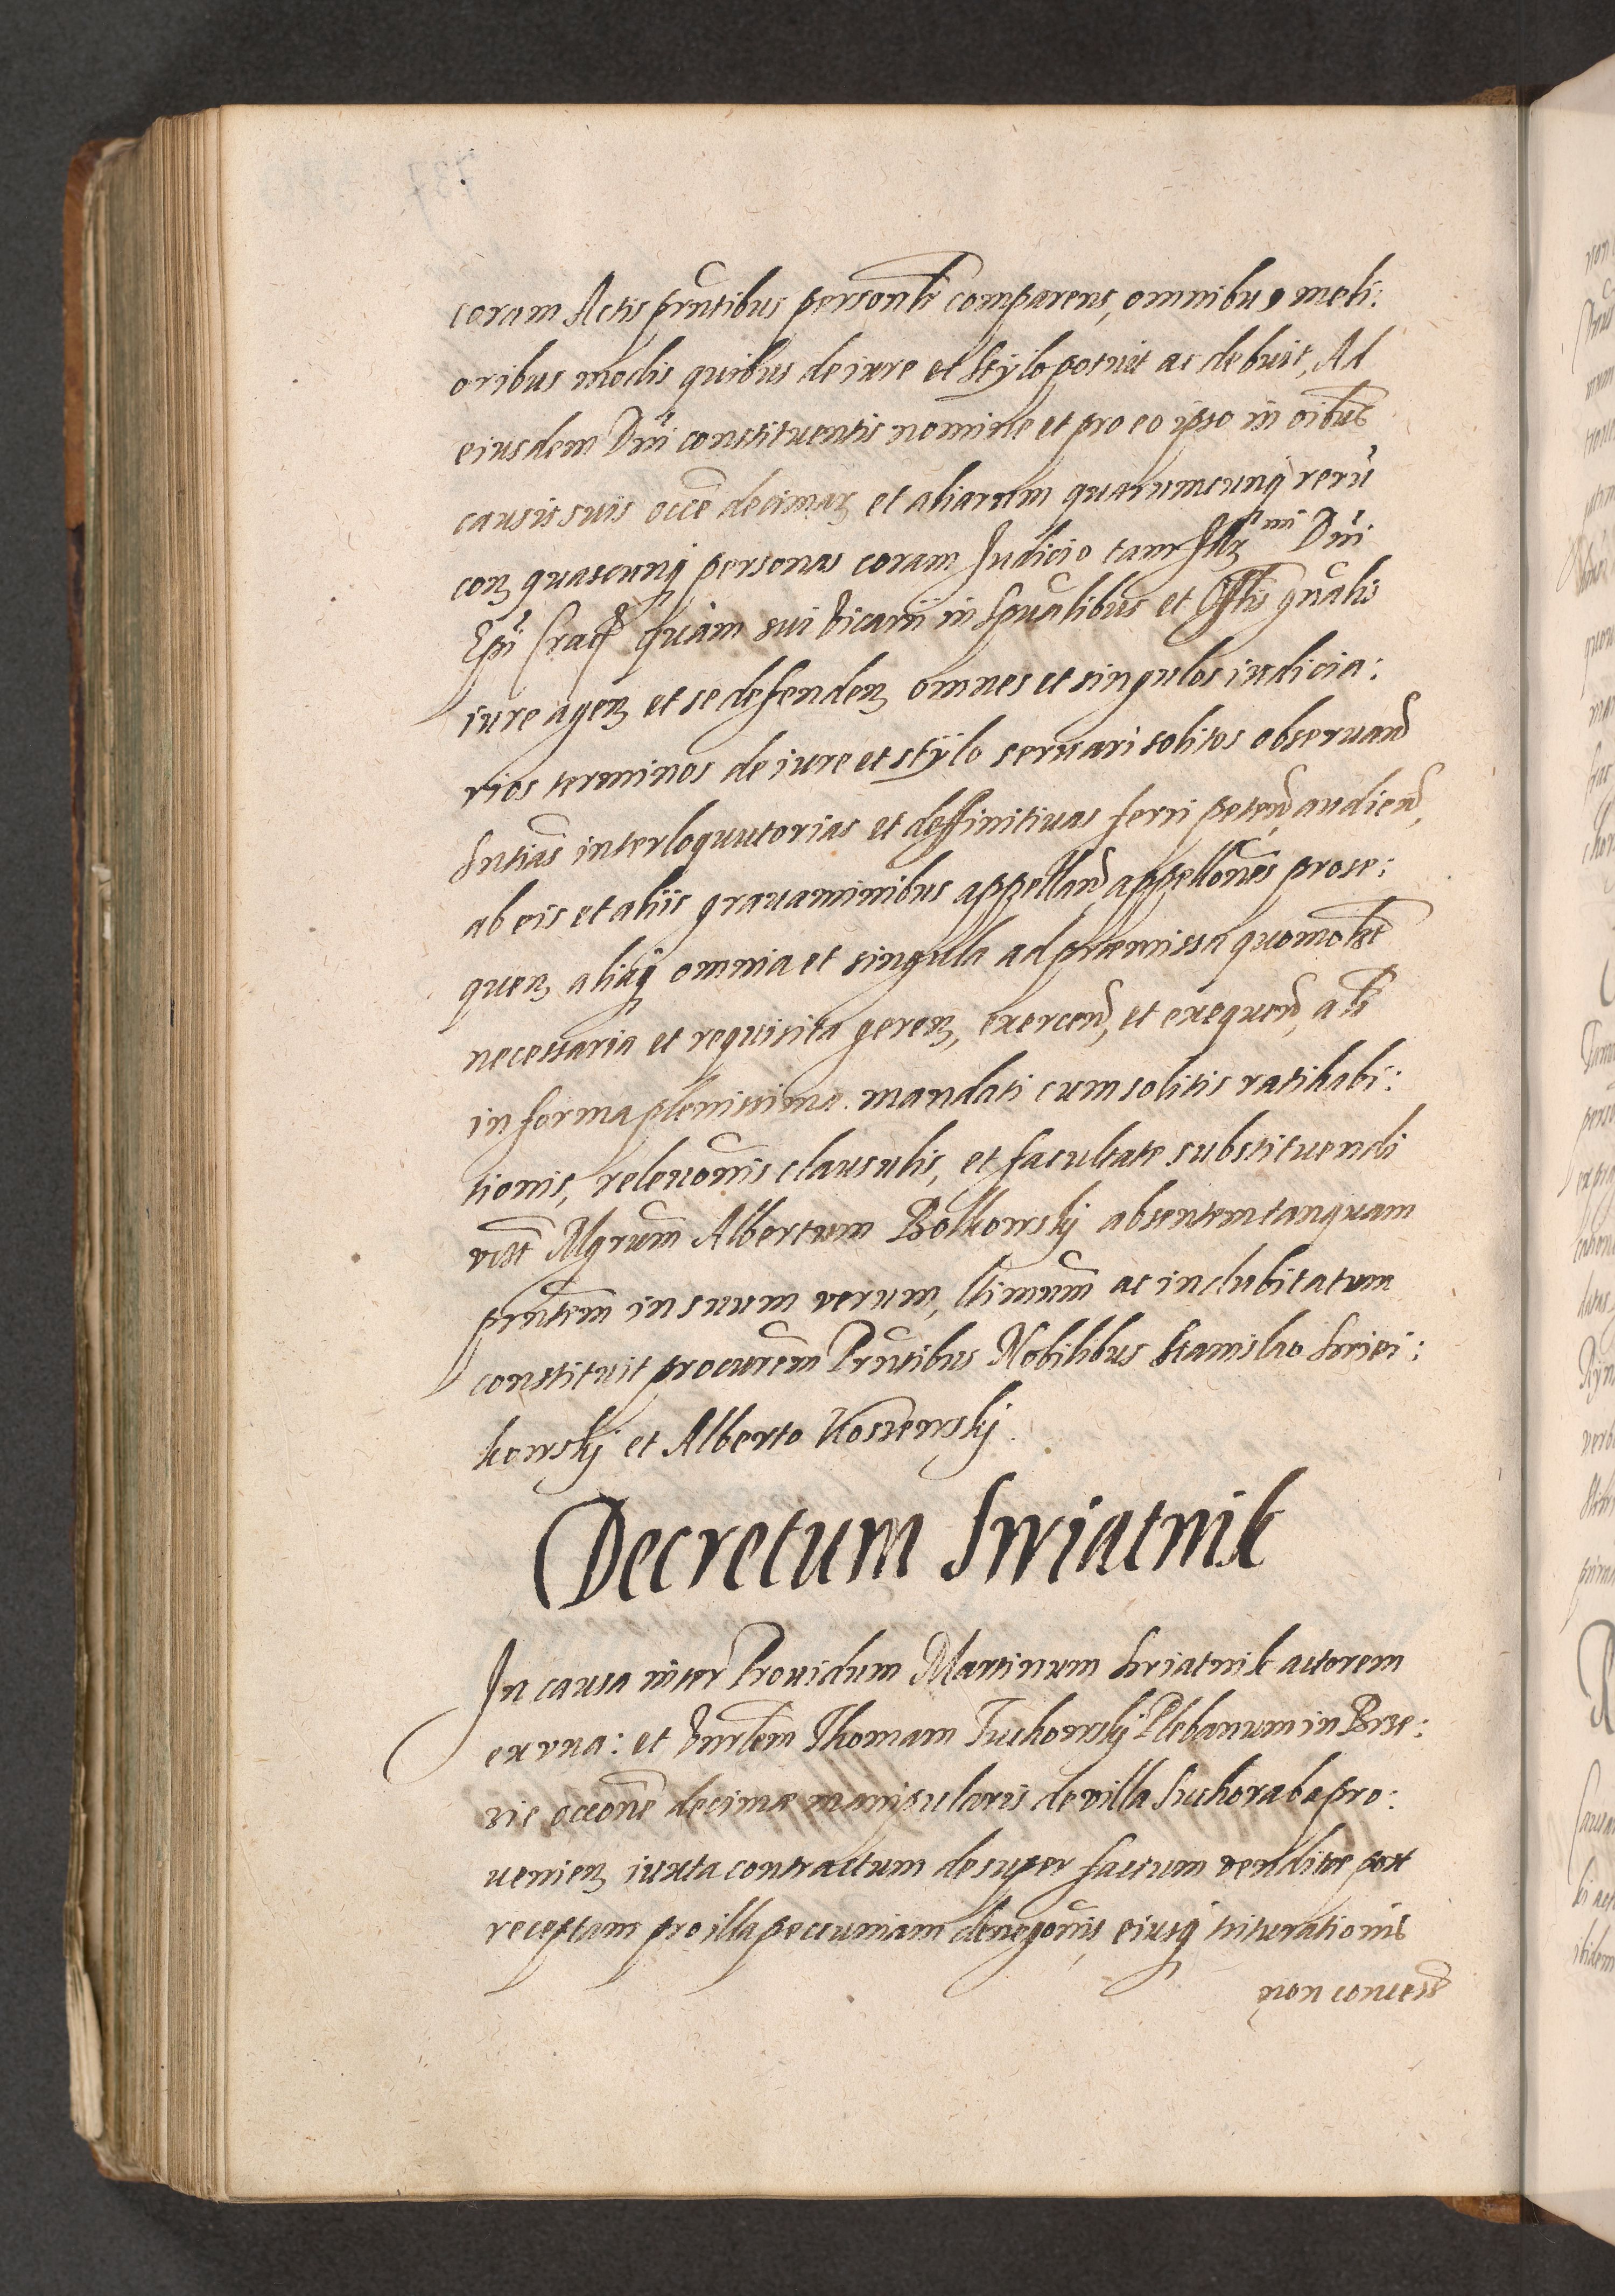 coram Actis pn̄tibus personl̄r comparens, omnibus meli:
oribus modis quibus de iure et stylo potuit ac debuit, Ad
eiusdem Dn̄i constituentis nomine et pro eo ipso in oībus
causis suis occ̄e decimaꝝ et aliarum quarumcunqȝ rerū
conȝ quascunqȝ personas coram Judicio tam Illꝫmi Dn̄i
Ep̄i Crac̄ quàm sui Vicarii in Sp̄ualibus et Offl̄is gn̄alis
iure agenȝ et se defendenȝ omnes et singulos iudicia:
rios terminos de iure et stylo seruari solitos obseruand̄
Sn̄tias interloquutorias et deffinitiuas ferri petend̄, audiend̄,
ab eis et aliis grauaminibus appelland̄ appellōnes prose:
quenȝ aliaqȝ omnia et singula ad præmissa quomol̄t
necessaria et requisita gerenȝ, exercend̄, et exequend̄, al̄r
in forma plenissima mandati cum solitis ratihabi:
tionis, releuōnis clausulis, et facultate substituendi
vℓt Mgrum̄ Albertum Bolkowskÿ absentem tanquam
pn̄tem in suum verum, l̄timum ac indubitatum
constituit procurēm Pn̄tibus Nobilibus Stanislao Swiei:
kowskÿ et Alberto Koszewskÿ
Decretum Swiatnik
In causa inter Prouidum Martinum Swiatnik actorem
ex vna: et Vn̄rlem Thomam Suchowskÿ Plebanum in Brze:
zie occōne decimæ manipularis de villa Suchoraba pro:
uenienȝ iuxta contractum desuper factum venditæ post
receptam pro illa peccuniam denegōnis, eiusqȝ triturationis
non concess̄